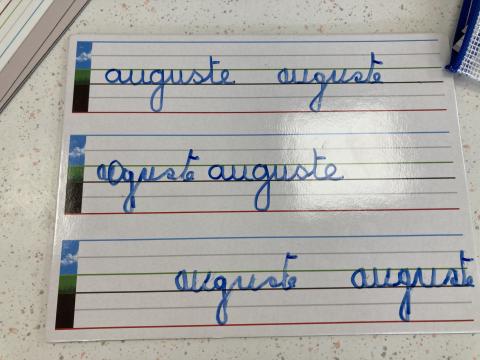 auguste auguste
oguste auguste
auguste auguste